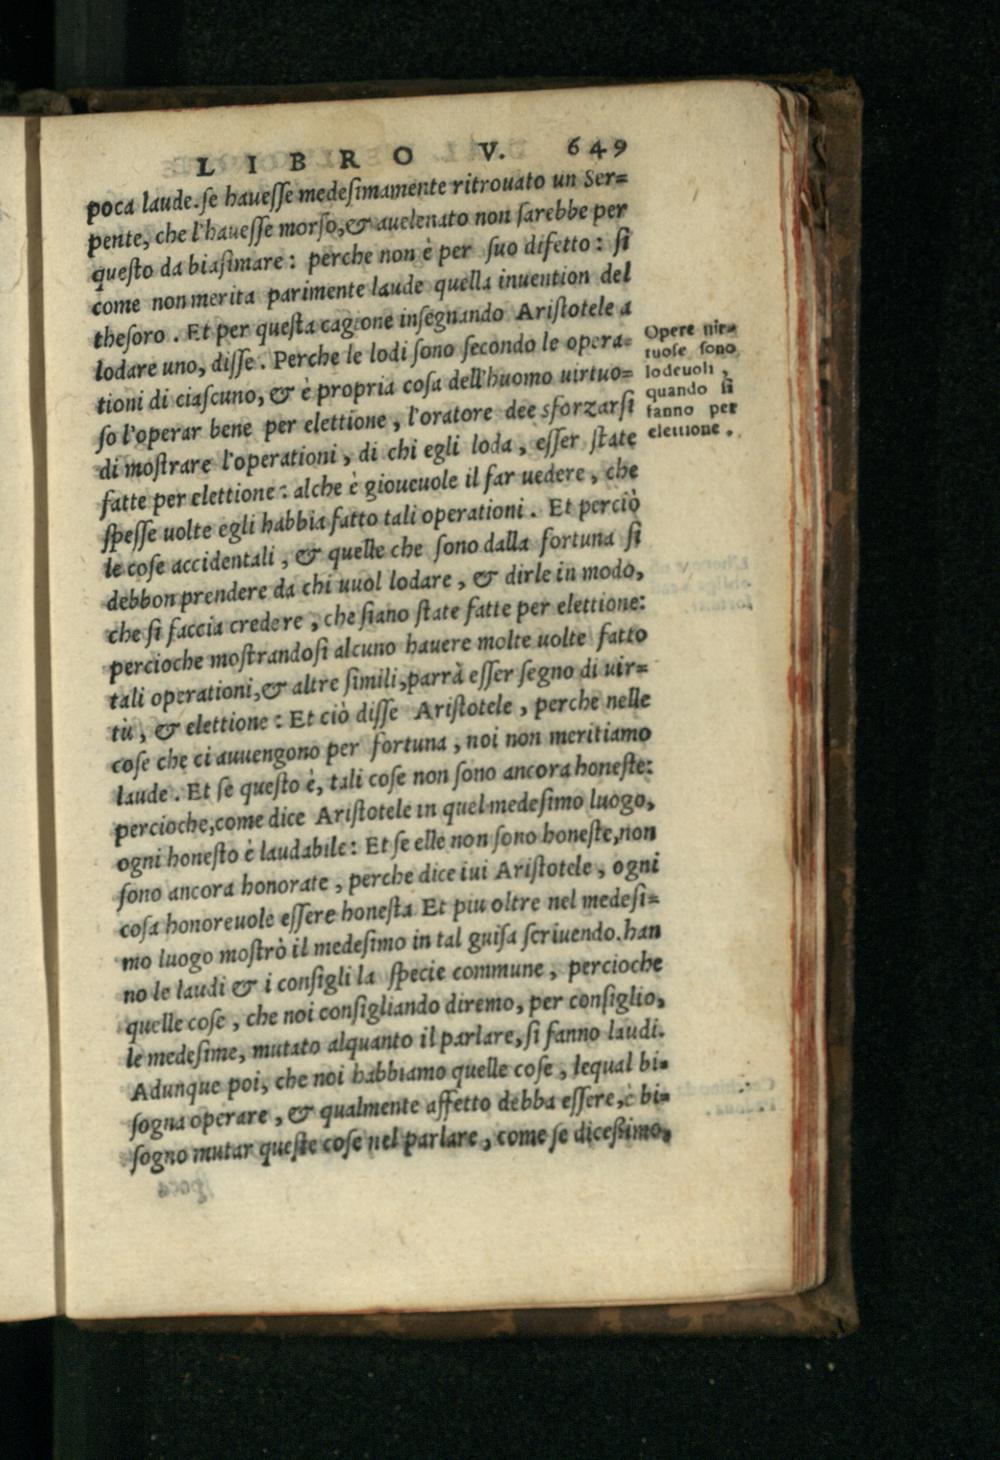 LIBRO V. 649
poca laude. se hauesse medesimamente ritrouato un Ser=
pente, che l'hauesse morso, & auelenato non sarebbe per
questo da biasimare: perche non è per suo difetto: si
come non merita parimente laude quella inuention del
thesoro. Et per questa cagione insegnando Aristotele a
lodare uno, disse. Perche le lodi sono secondo le opera=
tioni di ciascuno, & è propria cosa dell'huomo uirtuo=
so l'operar bene per elettione, l'oratore dee sforzarsi
di mostrare l'operationi, di chi egli loda, esser state
fatte per elettione: alche è gioueuole il far uedere, che
spesse uolte egli habbia fatto tali operationi. Et perciò
le cose accidentali, & quelle che sono dalla fortuna si
debbon prendere da chi uuol lodare, & dirle in modo,
che si faccia credere, che siano state fatte per elettione:
percioche mostrandosi alcuno hauere molte uolte fatto
tali operationi, & altre simili, parrà esser segno di uir=
tù, & elettione: Et ciò disse Aristotele, perche nelle
cose che ci auuengono per fortuna, noi non meritiamo
laude. Et se questo è, tali cose non sono ancora honeste:
percioche, come dice Aristotele in quel medesimo luogo,
ogni honesto è laudabile: Et se elle non sono honeste, non
sono ancora honorate, perche dice iui Aristotele, ogni
cosa honoreuole essere honesta Et piu oltre nel medesi=
mo luogo mostrò il medesimo in tal guisa scriuendo. han
no le laudi & i consigli la specie commune, percioche
quelle cose, che noi consigliando diremo, per consiglio,
le medesime, mutato alquanto il parlare, si fanno laudi.
Adunque poi, che noi habbiamo quelle cose, lequal bi=
sogna operare, & qualmente affetto debba essere, è bi=
sogno mutar queste cose nel parlare, come se dicessimo,
Opere uir=
tuose sono
lodeuoli,
quando si
fanno per
elettione.